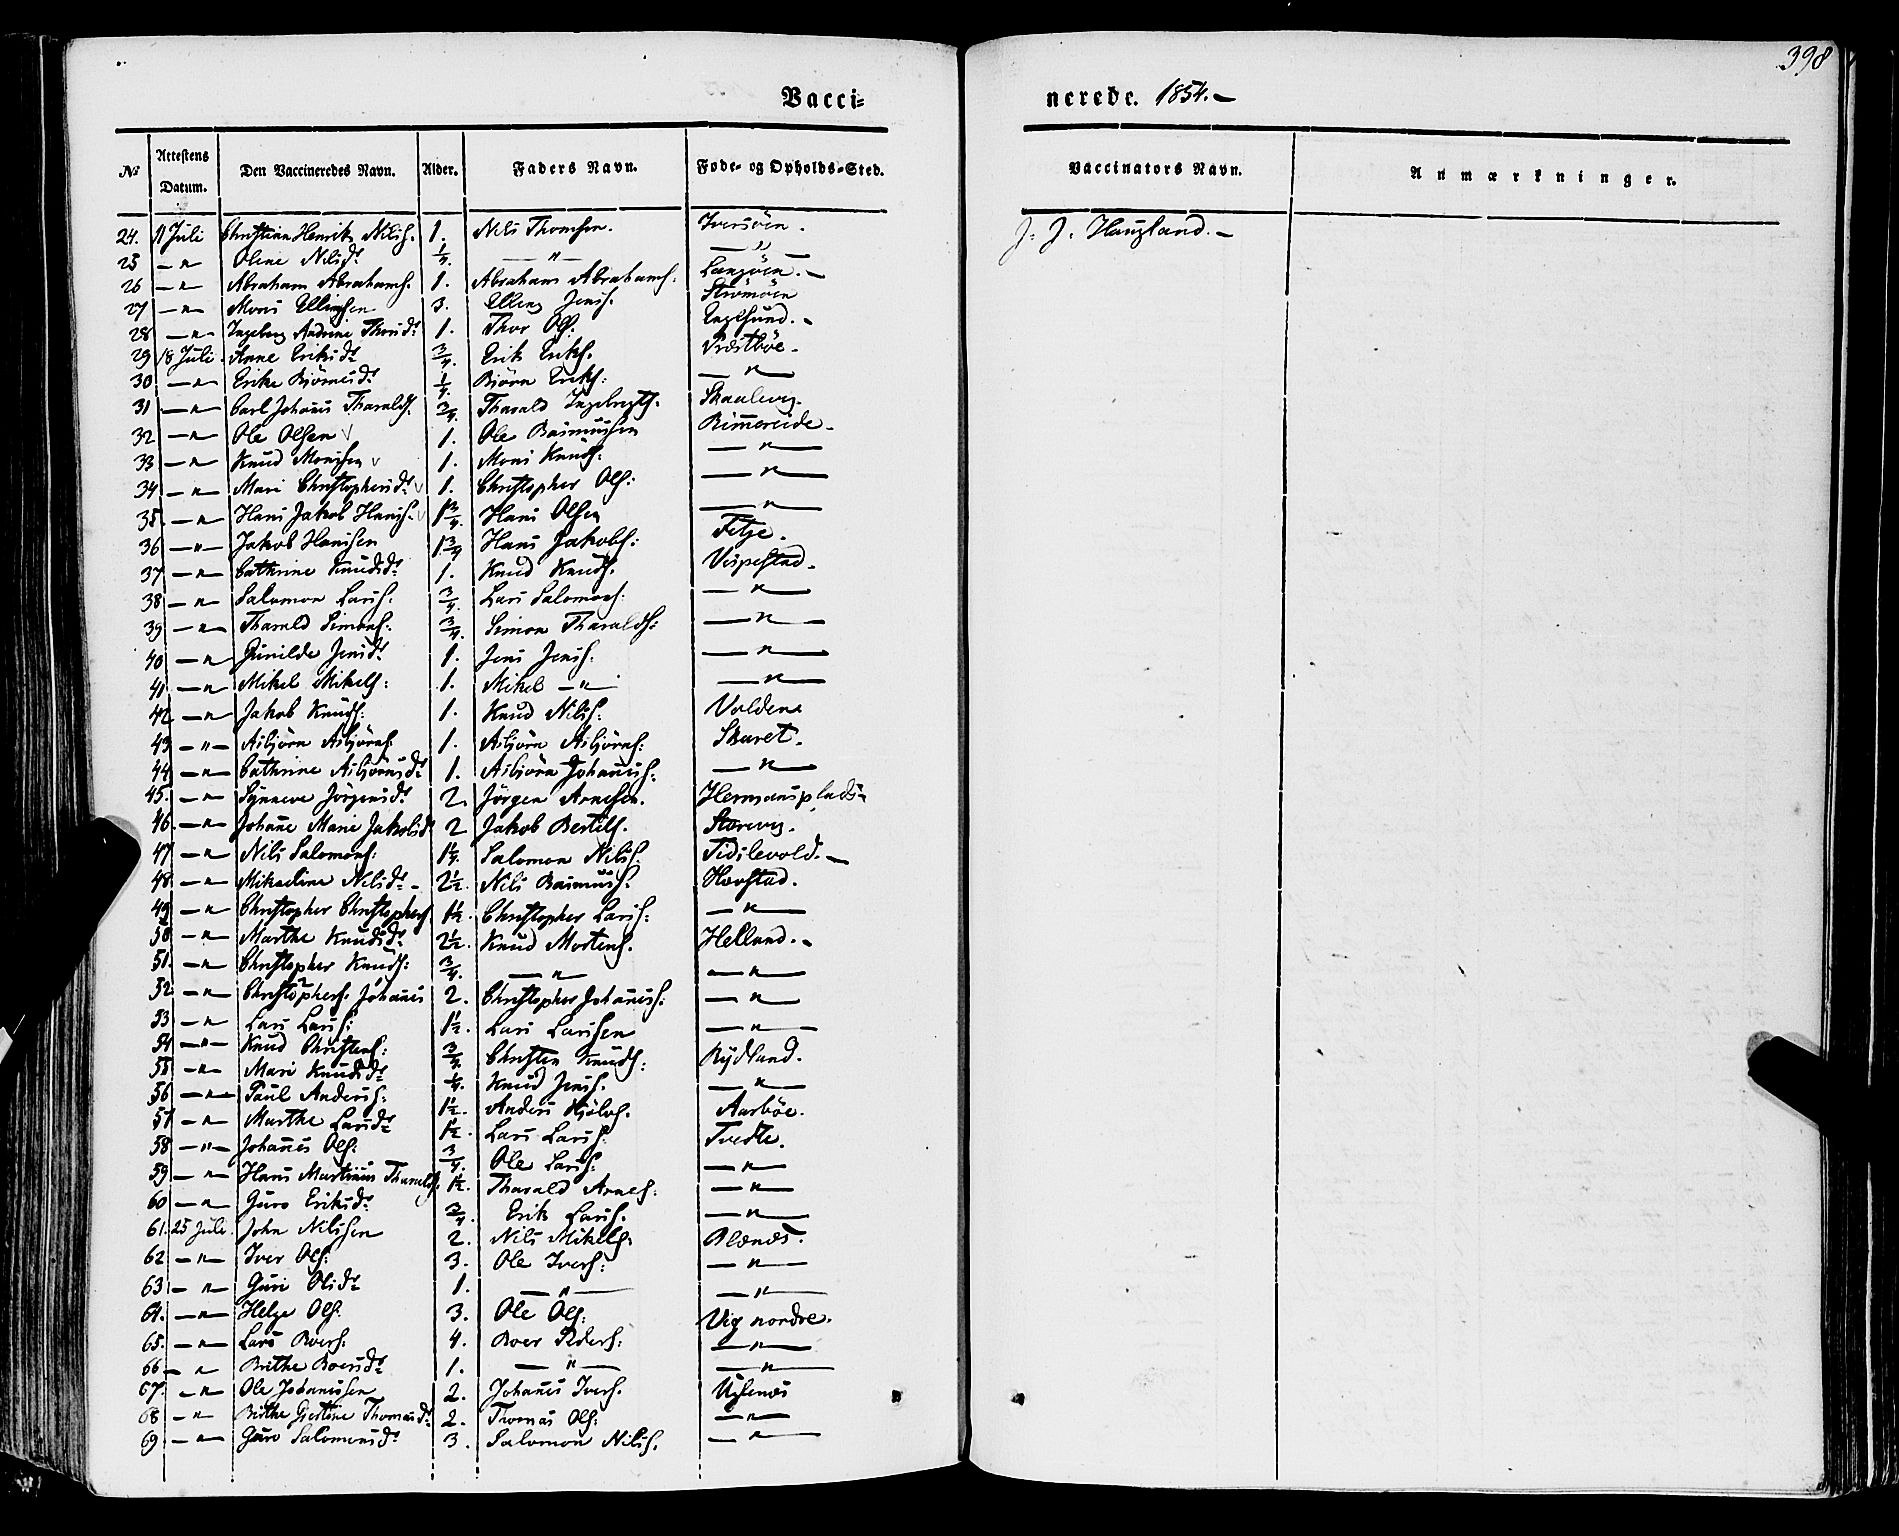 398
Vacci=
nerede. 1854.-
No Attestens Datum. Den Vaccineredes Navn. Alder. Faders Navn. Føde- og Opholds-Sted. Vaccinators Navn. Anmærkninger.
24. 11 Juli Christian Henrik Nilss. 1. Nils Thomsen. Iversöen. J. J. Haugland.-
25 — " Oline Nilsdr 1/4. — " — — " —
26 — " Abraham Abrahams. 1. Abraham Abrahams. Langöen.-
27 — " Mons Ellingsen 3. Elling Jenss. Strömöen
28 — " Ingeborg Andrine Thorsdr 1. Thor Ols. Engesund.-
29 18 Juli. Anne Eriksdr 3/4. Erik Eriks. Præstbøe.
30 — " Erike Björnesdr 1/4. Björn Eriks: — " —
31 — " Carl Johanes Tharalds. 3/4. Tharald Ingebregts. Skaalevig.
32 — " Ole Olsen √ 1. Ole Rasmussen Rimereide.
33 — " Knud Monssen √ 1. Mons Knuds: — " —
34 — " Mari Christophersdr √ 1. Christopher Ols: — " —
35 — " Hans Jakob Hanss. √ 1 3/4. Hans Olsen — " —
36 — " Jakob Hansen 1 3/4 Hans Jakobs: Fitje.
37 — " Cathrine Knudsdr 1. Knud Knuds. Vespestad.
38 — " Salomon Larss. 3/4. Lars Salomons: — " —
39 — " Tharald Simons: 3/4. Simon Tharalds: — " —
40 — " Gunilde Jensdr 1. Jens Jenss. — " —
41 — " Mikel Mikels: 1. Mikel — " — — " —
42 — " Jakob Knuds: 1. Knud Nilss: Volden
43 — " — Asbjörn Asbjörns: 1. Asbjörn Asbjörns: Skaret.
44 — " Cathrine Asbjörnsdr 1. Asbjörn Johaness. — " —
45. — " Synneve Jörgensdr 2. Jörgen Arnesen. Hermansplads
46. — " Johane Marie Jakobsdr 2 Jakob Bertils. Storevig.
47 — " Nils Salomons: 1 1/4. Salomon Nilss. Tidslevold.-
48 — " Mikaeline Nilsdr 2 1/2. Nils Rasmuss. Hovstad.
49 — " Christopher Christophers. 1 1/2. Christopher Larss: — " —
50 — " Marthe Knudsdr 2 1/2. Knud Mortens. Helland.-
51. — " Christopher Knuds: 3/4. — " — — " —
52 — " Christophers. Johanes 2. Christopher Johaness. — " —
53 — " Lars Larss: 1 1/2. Lars Larssen — " —
54 — " — Knud Christens: 3/4 Christen Knuds: Rydland.
55 — " Mari Knudsdr 1/4. Knud Jenss. — " —
56 — " Paul Anderss: 1 1/2. Anders Kjölvs. Aarbøe.
57 — " Marthe Larsdr 1 1/2. Lars Larss: Tvedte.
58 — " — Johanes Ols: 3/4. Ole Larss: — " —
59 — " Hans Martinus Tharalds. 1 1/2. Tharald Arnes: — " —
60 — " Guro Eriksdr 3/4. Erik Larss. — " —
61. 25 Juli. John Nilssen 2. Nils Mikels: Blænæs.
62 — " Iver Ols: 3. Ole Ivers: — " —
63 — " Guri Olsdr 1. — " — — " —
64. — " Helge Ols. 3. Ole Ols: Vig nordre.
65. — " Lars Roers. 4. Roer Peders: — " —
66 — " Brithe Roersdr 1. — " — — " —
67. — " Ole Johanessen 2. Johanes Ivers. Uglenæs
68 — " Brithe Gjertine Thomasdr 2. Thomas Ols: — " —
69 — " Guro Salomonsdr 3. Salomon Nilss. — " —